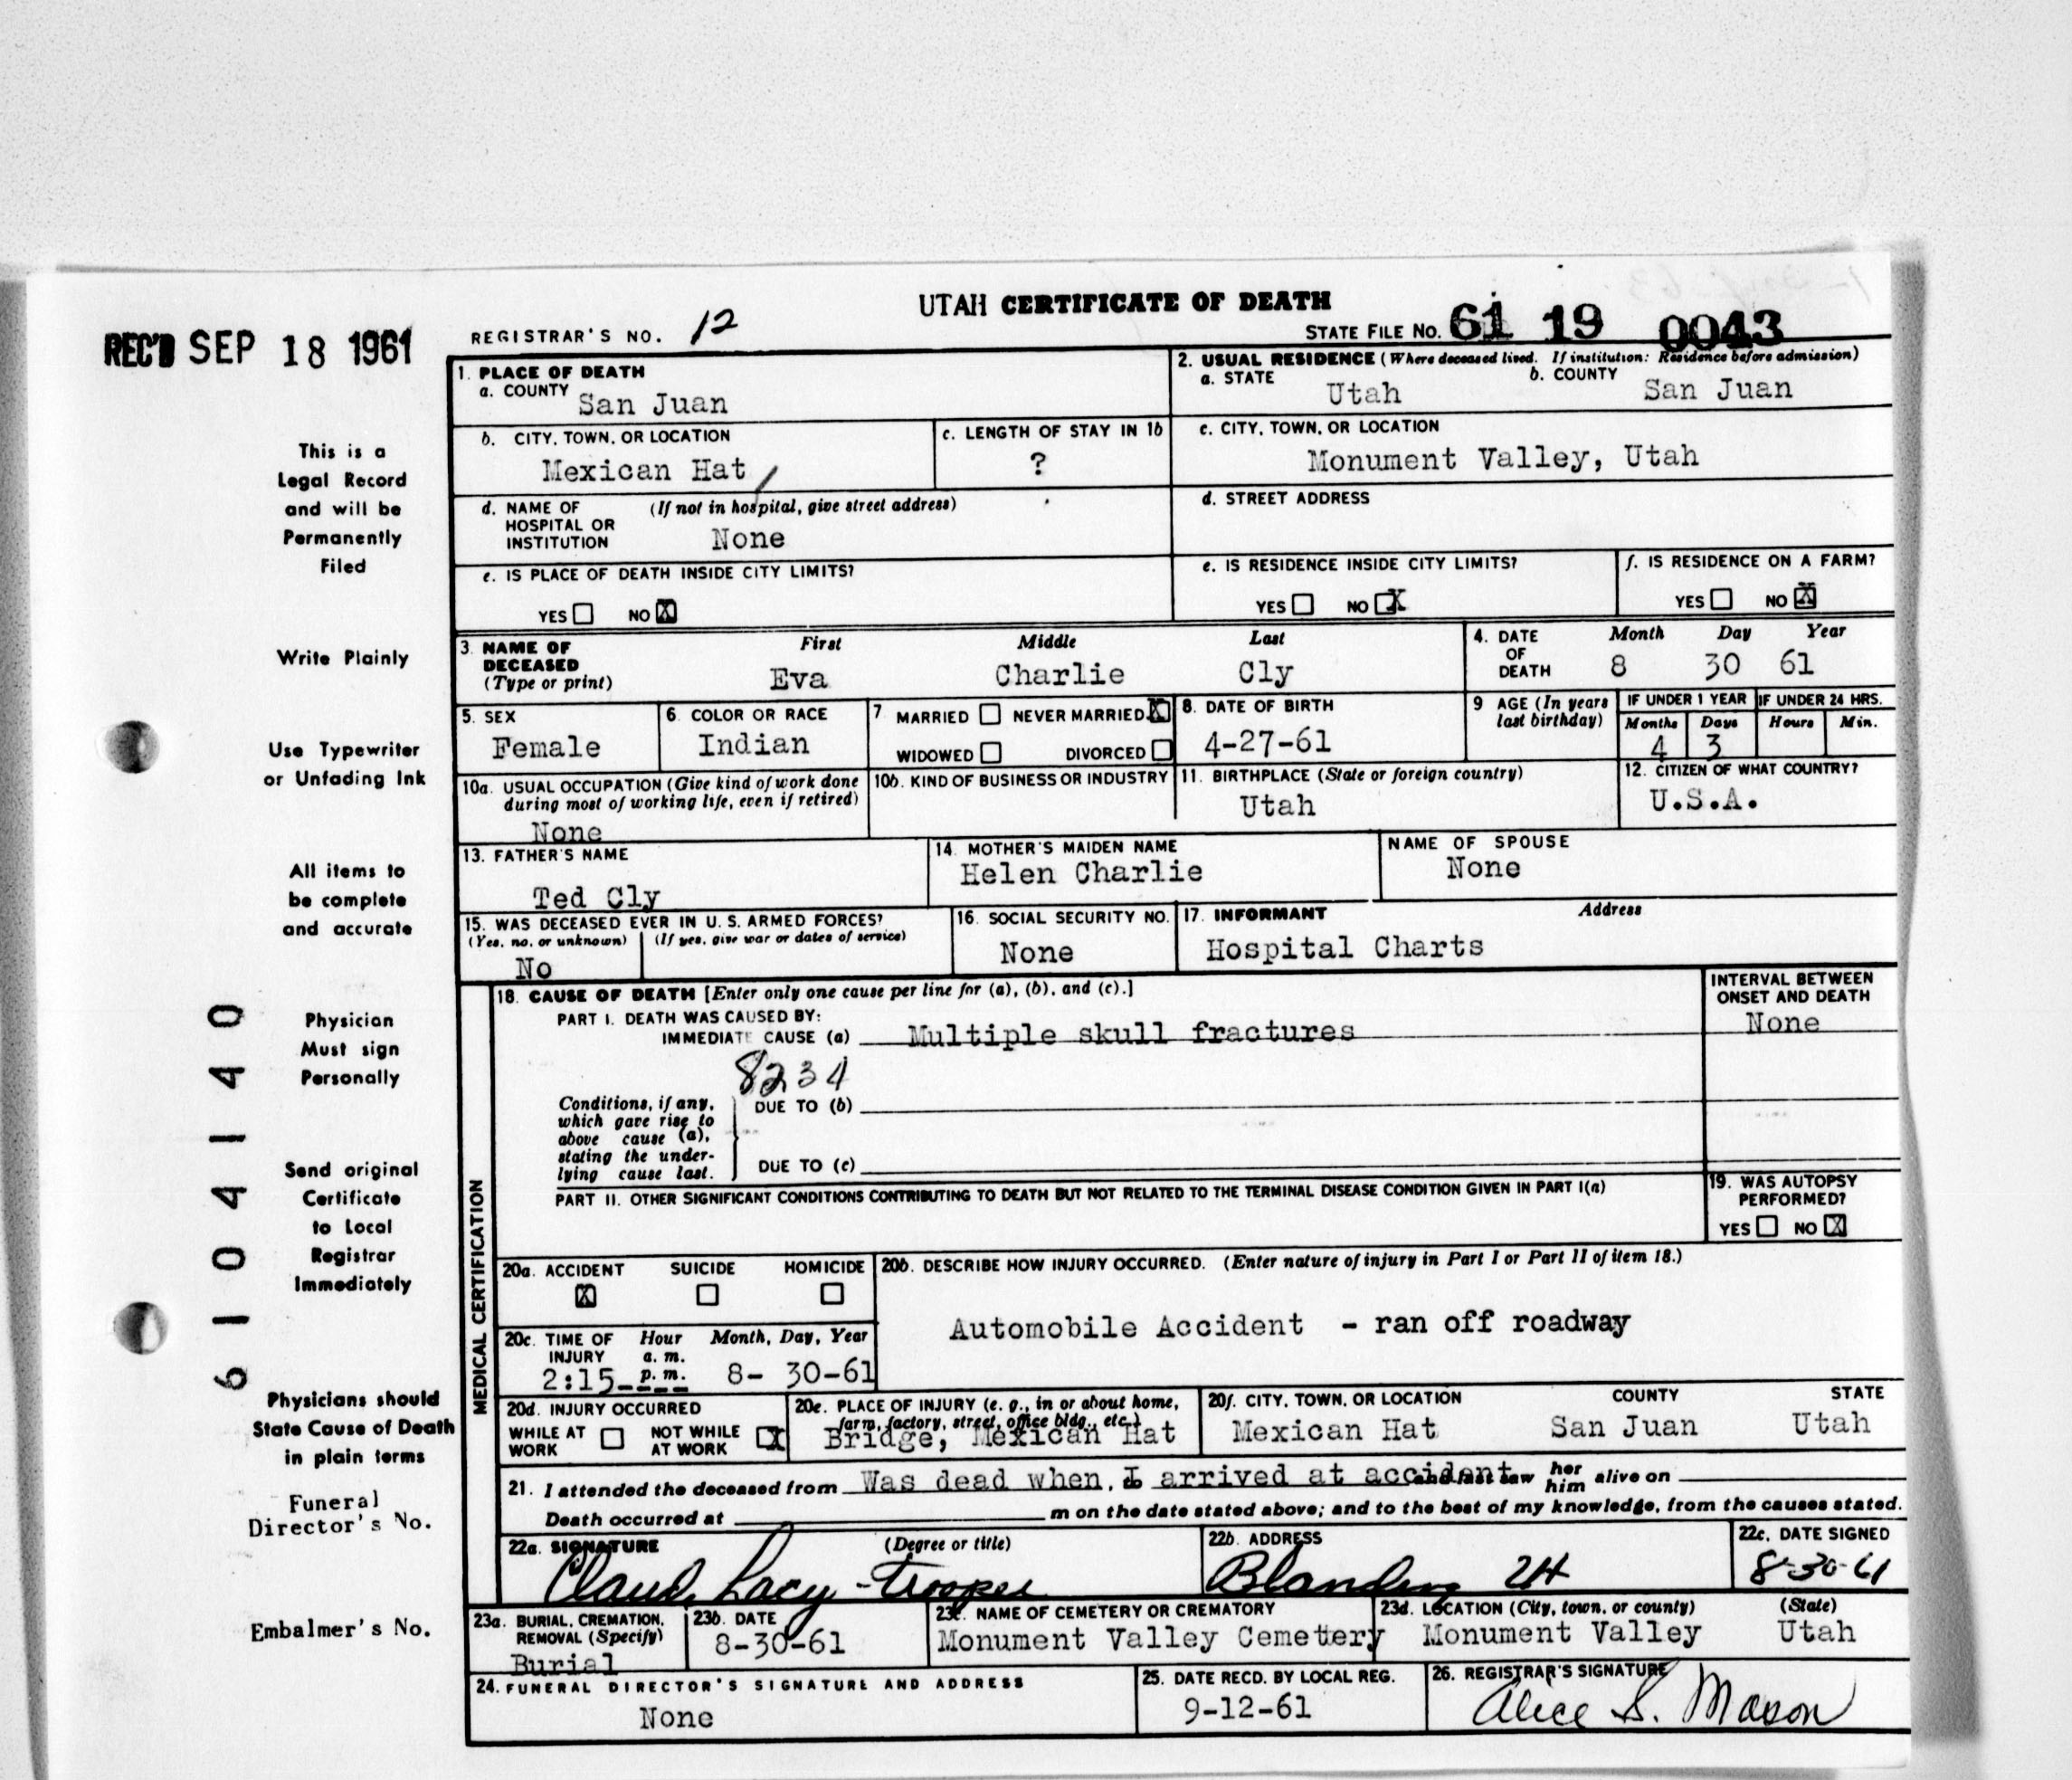 UTAH CERTIFICATE OF DEATH
REC'D SEP 18 1961
REGISTRAR'S NO. 12
STATE FILE NO. 61 19 0043
This is a
Legal Record
and will be
Permanently
Filed
Write Plainly
Use Typewriter
or Unfading Ink
All items to
be complete
and accurate
Physician
Must sign
Personally
Send original
Certificate
to Local
Registrar
Immediately
Physicians should
State Cause of Death
in plain terms
Funeral
Director's No.
Embalmer's No.
61041140
1. PLACE OF DEATH
a. COUNTY San Juan
2. USUAL RESIDENCE (Where deceased lived. If institution: Residence before admission)
a. STATE Utah b. COUNTY San Juan
b. CITY, TOWN, OR LOCATION
Mexican Hat
c. LENGTH OF STAY IN 1b
?
c. CITY, TOWN, OR LOCATION
Monument Valley, Utah
d. NAME OF (If not in hospital, give street address)
HOSPITAL OR
INSTITUTION None
d. STREET ADDRESS
e. IS PLACE OF DEATH INSIDE CITY LIMITS?
YES NO X
e. IS RESIDENCE INSIDE CITY LIMITS?
YES NO X
f. IS RESIDENCE ON A FARM?
YES NO X
3. NAME OF First Middle Last
DECEASED
(Type or print) Eva Charlie Cly
4. DATE Month Day Year
OF
DEATH 8 30 61
5. SEX
Female
6. COLOR OR RACE
Indian
7 MARRIED NEVER MARRIED X
WIDOWED DIVORCED
8. DATE OF BIRTH
4-27-61
9 AGE (In years
last birthday)
IF UNDER 1 YEAR
Months Days
4 3
IF UNDER 24 HRS.
Hours Min.
10a. USUAL OCCUPATION (Give kind of work done
during most of working life, even if retired)
None
10b. KIND OF BUSINESS OR INDUSTRY
11. BIRTHPLACE (State or foreign country)
Utah
12. CITIZEN OF WHAT COUNTRY?
U.S.A.
13. FATHER'S NAME
Ted Cly
14. MOTHER'S MAIDEN NAME
Helen Charlie
NAME OF SPOUSE
None
15. WAS DECEASED EVER IN U. S. ARMED FORCES?
(Yes, no. or unknown) (If yes, give war or dates of service)
No
16. SOCIAL SECURITY NO.
None
17. INFORMANT Address
Hospital Charts
MEDICAL CERTIFICATION
18. CAUSE OF DEATH [Enter only one cause per line for (a), (b), and (c).]
PART I. DEATH WAS CAUSED BY:
IMMEDIATE CAUSE (a) Multiple skull fractures
INTERVAL BETWEEN
ONSET AND DEATH
None
8234
Conditions, if any,
which gave rise to
above cause (a),
stating the under-
lying cause last.
DUE TO (b)
DUE TO (c)
PART II. OTHER SIGNIFICANT CONDITIONS CONTRIBUTING TO DEATH BUT NOT RELATED TO THE TERMINAL DISEASE CONDITION GIVEN IN PART I(a)
19. WAS AUTOPSY
PERFORMED?
YES NO X
20a. ACCIDENT SUICIDE HOMICIDE
X
20b. DESCRIBE HOW INJURY OCCURRED. (Enter nature of injury in Part I or Part II of item 18.)
Automobile Accident - ran off roadway
20c. TIME OF Hour Month, Day, Year
INJURY a. m.
2:15 p. m. 8- 30-61
20d. INJURY OCCURRED
WHILE AT WORK NOT WHILE AT WORK X
20e. PLACE OF INJURY (e. g., in or about home,
farm, factory, street, office bldg., etc.)
Bridge, Mexican Hat
20f. CITY, TOWN, OR LOCATION COUNTY STATE
Mexican Hat San Juan Utah
21. I attended the deceased from Was dead when I arrived at accident and last saw her him alive on
Death occurred at m on the date stated above; and to the best of my knowledge, from the causes stated.
22a. SIGNATURE (Degree or title)
Claud Lacy - Trooper
22b. ADDRESS
Blanding
22c. DATE SIGNED
8-30-61
23a. BURIAL, CREMATION,
REMOVAL (Specify)
Burial
23b. DATE
8-30-61
23c. NAME OF CEMETERY OR CREMATORY
Monument Valley Cemetery
23d. LOCATION (City, town, or county) (State)
Monument Valley Utah
24. FUNERAL DIRECTOR'S SIGNATURE AND ADDRESS
None
25. DATE RECD. BY LOCAL REG.
9-12-61
26. REGISTRAR'S SIGNATURE
Alice S. Mason